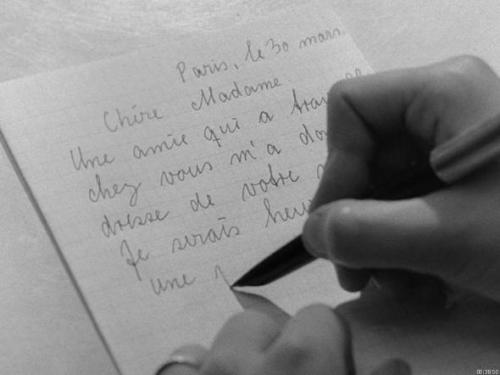 Paris, le 30 mars.
Chère Madame
Une amie qui a
chez vous m'a
dresse de votre
Je serais
une